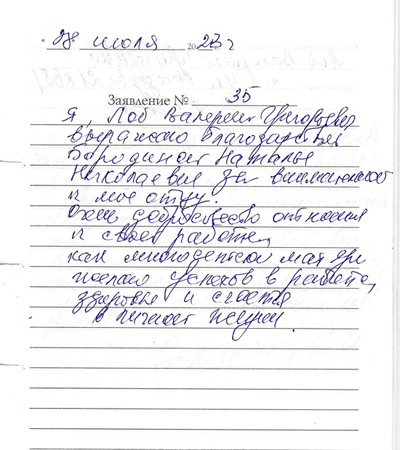 28 июля 2023 г
Заявление № 35
Я, Лоб Валерий Григорьевич
выражаю благодарность
Бородиной Наталье
Николаевне за внимательность
к моему отцу.
Очень добросовестно относится
к своей работе,
как многодетной матери
желаю успехов в работе,
здоровья и счастья
в личной жизни